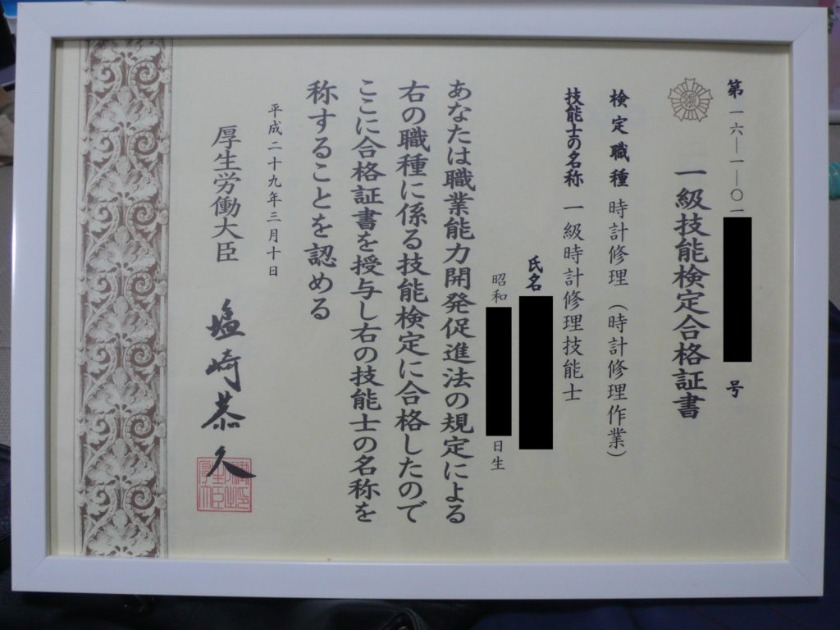 第一六―一―〇一
号
一級技能検定合格証書
検定職種 時計修理（時計修理作業）
技能士の名称 一級時計修理技能士
氏名
昭和
日生
あなたは職業能力開発促進法の規定による
右の職種に係る技能検定に合格したので
ここに合格証書を授与し右の技能士の名称を
称することを認める
平成二十九年三月十日
厚生労働大臣 塩崎恭久